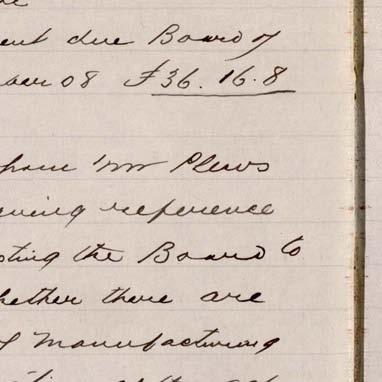 ent due Board of
ber 08 £36. 16. 8
from Mr Plews
having reference
sting the Board to
hether there are
of manufacturing